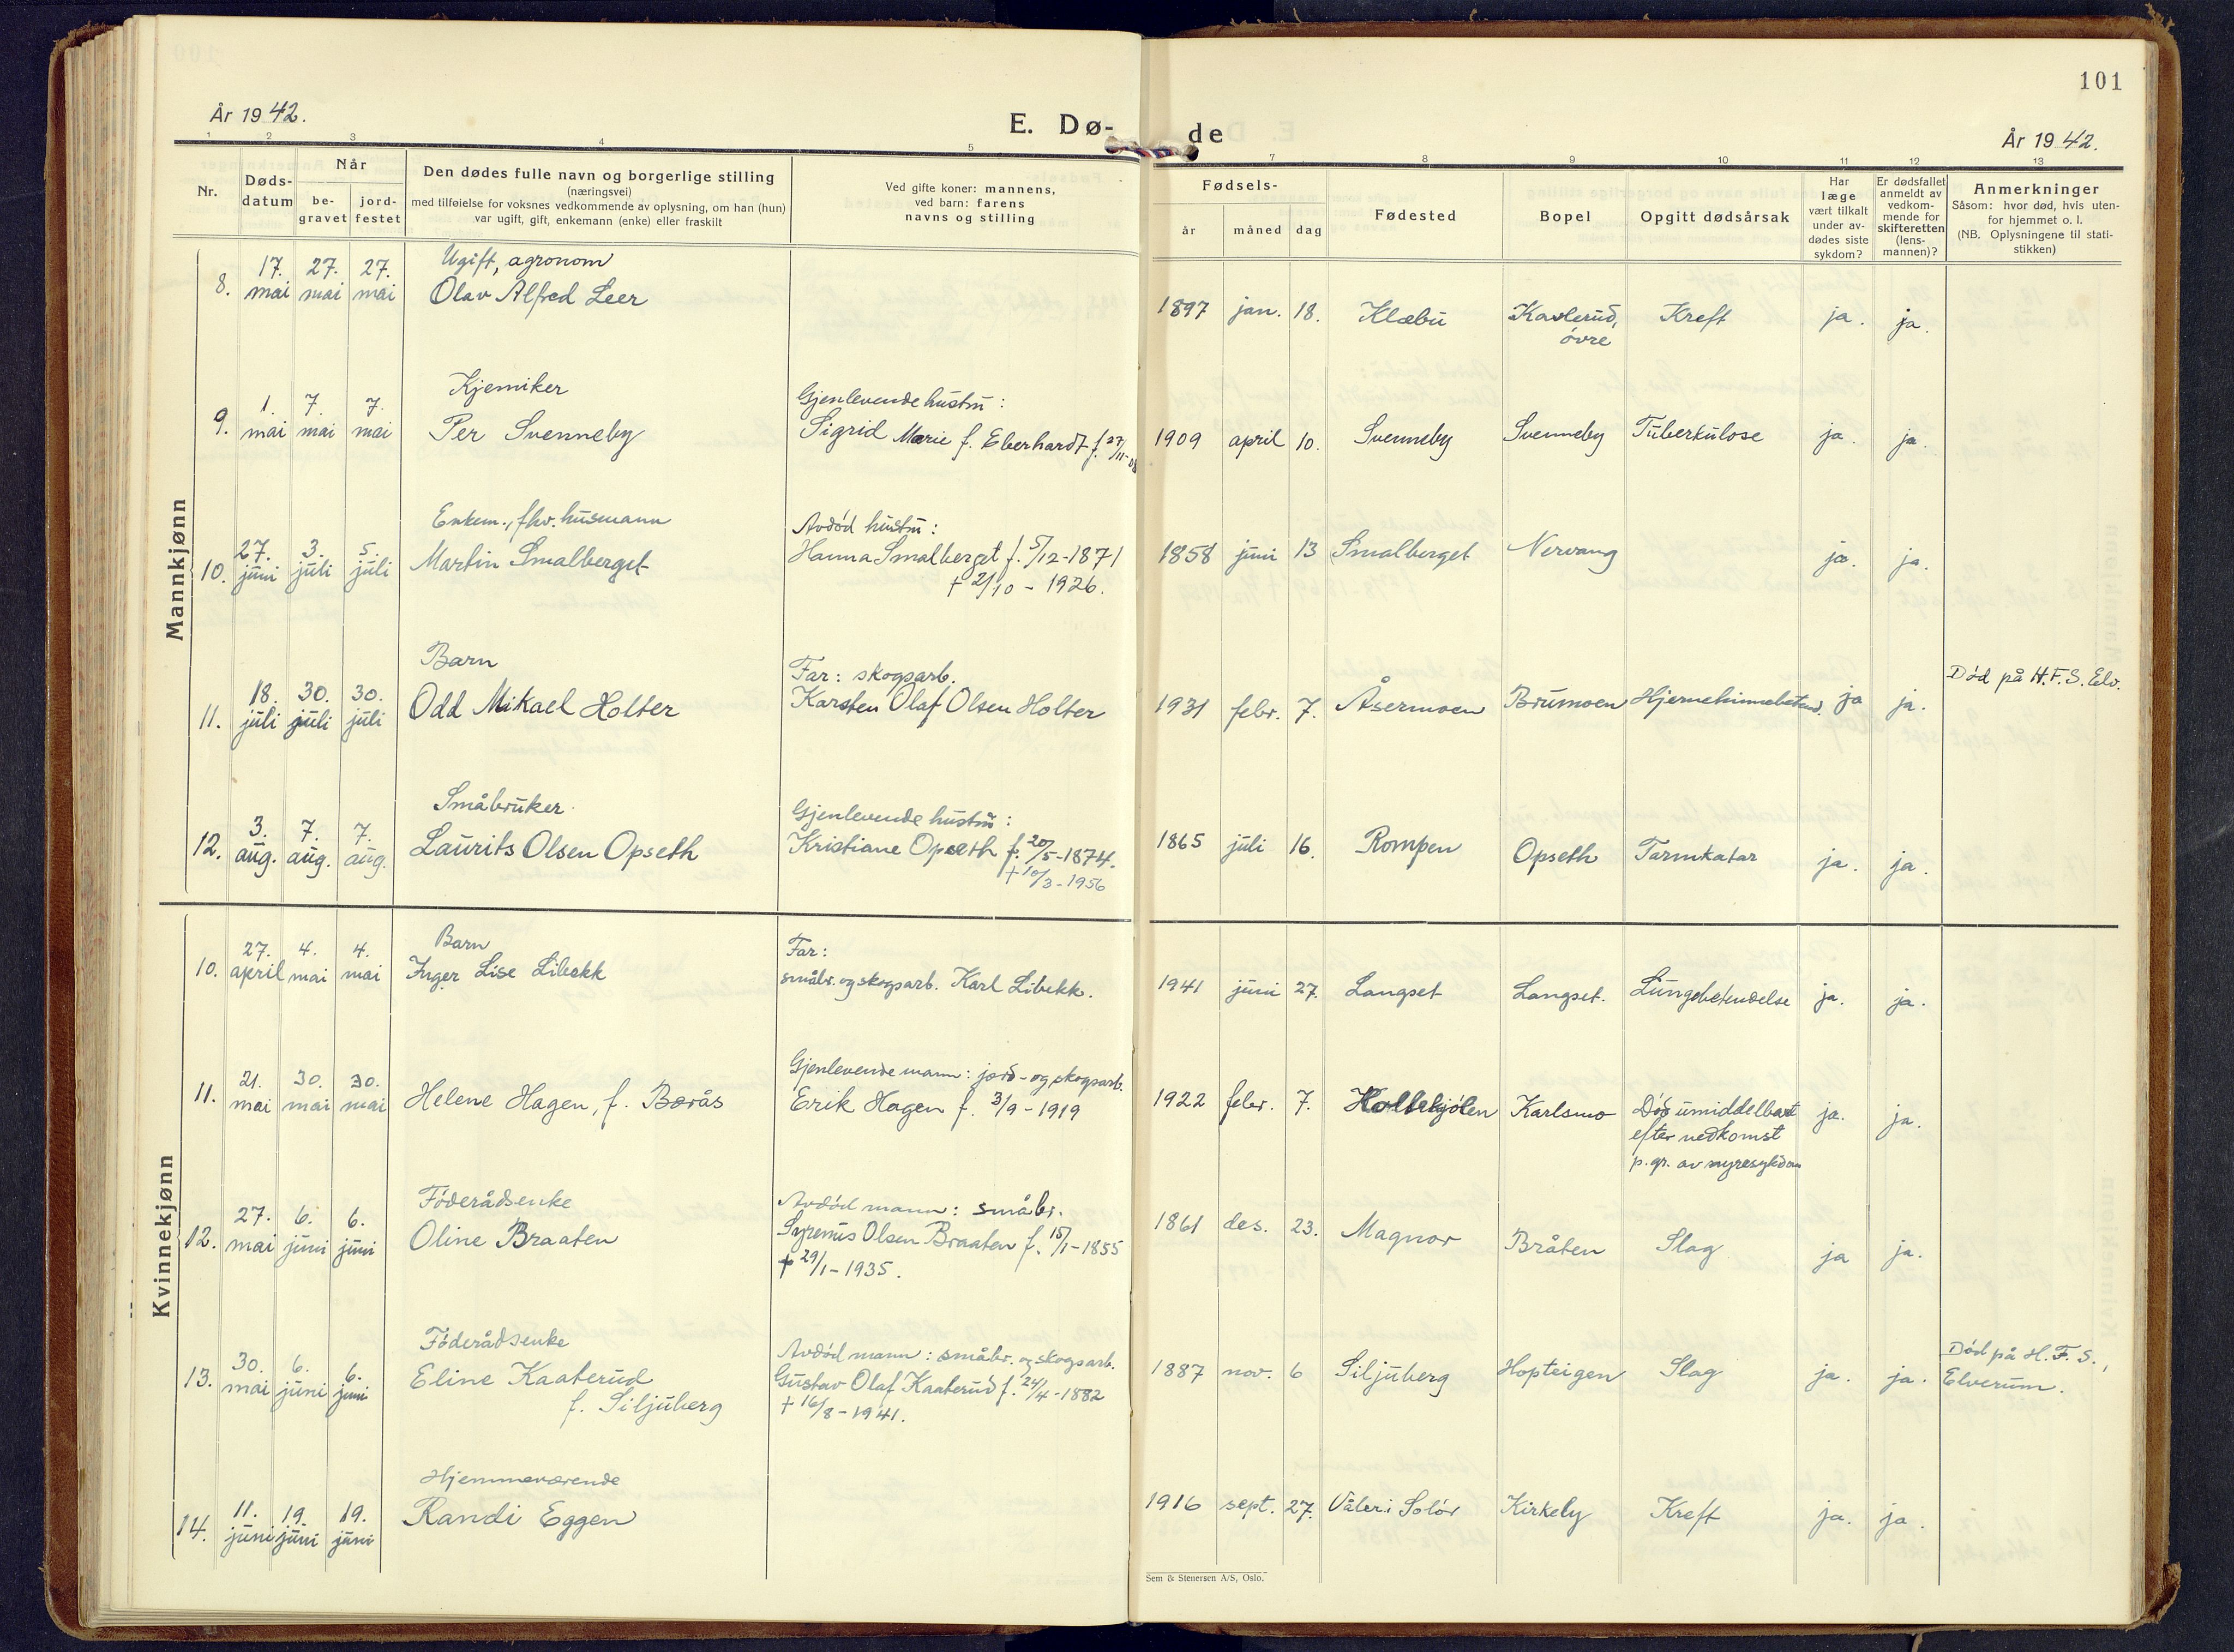 101
År 1942.
E. Dø-
de
År 1942.
1 2 3 4 5 7 8 9 10 11 12 13
Nr.
Døds-
datum
Når
be-
gravet
jord-
festet
Den dødes fulle navn og borgerlige stilling
(næringsvei)
med tilføielse for voksnes vedkommende av oplysning, om han (hun)
var ugift, gift, enkemann (enke) eller fraskilt
Ved gifte koner: mannens,
ved barn: farens
navns og stilling
Fødsels-
år måned dag
Fødested
Bopel
Opgitt dødsårsak
Har
læge
vært tilkalt
under av-
dødes siste
sykdom?
Er dødsfallet
anmeldt av
vedkom-
mende for
skifteretten
(lens-
mannen)?
Anmerkninger
Såsom: hvor død, hvis uten-
for hjemmet o. l.
(NB. Oplysningene til stati-
stikken)
Mannkjønn
Ugift, agronom
8. 17. mai 27. mai 27. mai Olav Alfred Leer 1897 jan. 18. Klæbu Kaslerud, Kreft ja. ja.
øvre
Kjemiker Gjenlevende hustru:
9. 1. mai 7. mai 7. mai Per Svenneby Sigrid Marie f. Eberhardt f. 27/11-08 1909 april 10. Svenneby Svenneby Tuberkulose ja. ja.
Enkem., fhv. husmann Avdød hustru:
10. 27. juni 3. juli 5. juli Martin Smalberget Hanna Smalberget f. 5/12-1871 1858 juni 13 Smalberget Nervang ja. ja.
+ 2/10 - 1926.
Barn Far: skogsarb. Død på H.F.S. Elv.
11. 18. juli 30. juli 30. juli Odd Mikael Holter Karsten Olaf Olsen Holter 1931 febr. 7. Åsermoen Brumoen Hjernehinnebetend. ja ja.
Småbruker Gjenlevende hustru:
12. 3. aug. 7. aug. 7. aug. Laurits Olsen Opseth Kristiane Opseth f. 20/5-1874. 1865 juli 16. Rompen Opseth Tarmkatar ja. ja.
+ 10/3-1956
Kvinnekjønn
Barn Far:
10. 27. april 4. mai 4. mai Inger Lise Libekk småbr. og skogsarb. Karl Libekk. 1941 juni 27. Langset Langset. Lungebetendelse ja. ja.
Gjenlevende mann: jord- og skogsarb.
11. 21. mai 30. mai 30. mai Helene Hagen, f. Borås Erik Hagen f. 3/9-1919 1922 febr. 7. Karlsmo Død umiddelbart ja. ja.
efter nedkomst
p. gr. av nyresykdom
Føderådsenke Avdød mann: småbr.
12. 27. mai 6. juni 6. juni Oline Braaten Syrenus Olsen Braaten f. 15/1-1855 1861 des. 23. Magnor Bråten Slag ja ja.
+ 29/1-1935.
Føderådsenke Avdød mann: småbr. og skogsarb. Død på H.F.S.,
13. 30. mai 6. juni 6. juni Eline Kaaterud Gustav Olaf Kaaterud f. 24/4-1882 1887 nov. 6 Siljuberg Hopteigen Slag ja. ja. Elverum.
f. Siljuberg + 16/8-1941.
Hjemmeværende
14. 11. juni 19. juni 19. juni Randi Eggen 1916 sept. 27. Våler i Solør Kirkeby Kreft ja. ja.
Sem & Stenersen A/S, Oslo.